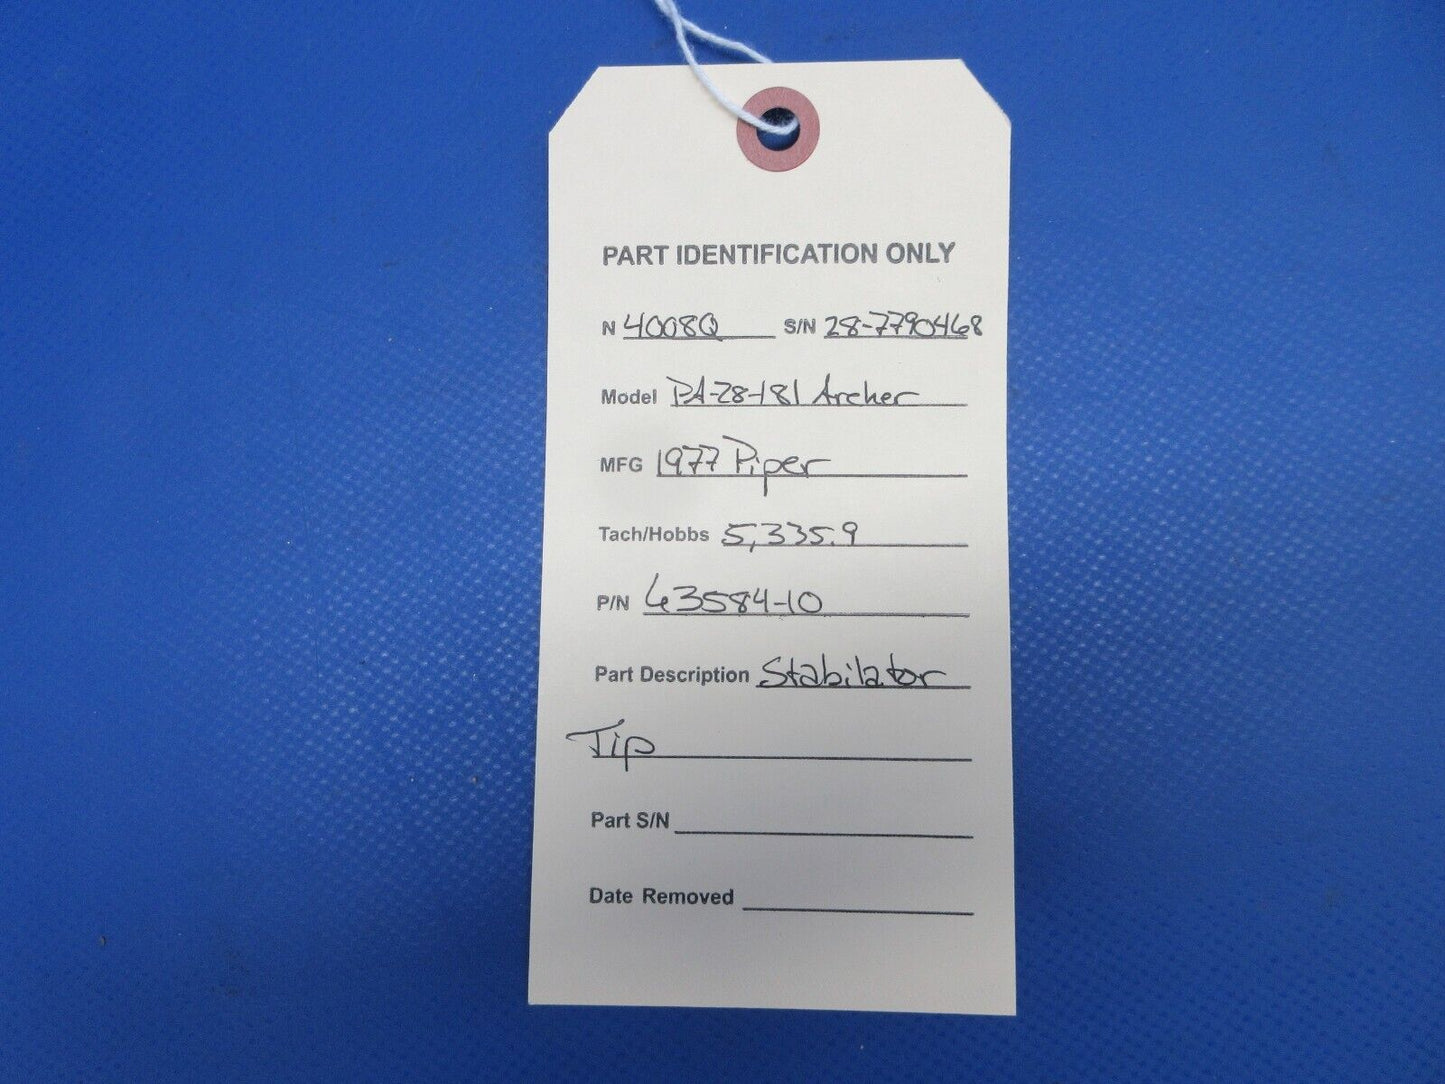 PART IDENTIFICATION ONLY
N 4008Q S/N 28-7790468
Model PA-28-181 Archer
MFG 1977 Piper
Tach/Hobbs 5,335.9
P/N 63584-10
Part Description Stabilator
Tip
Part S/N
Date Removed